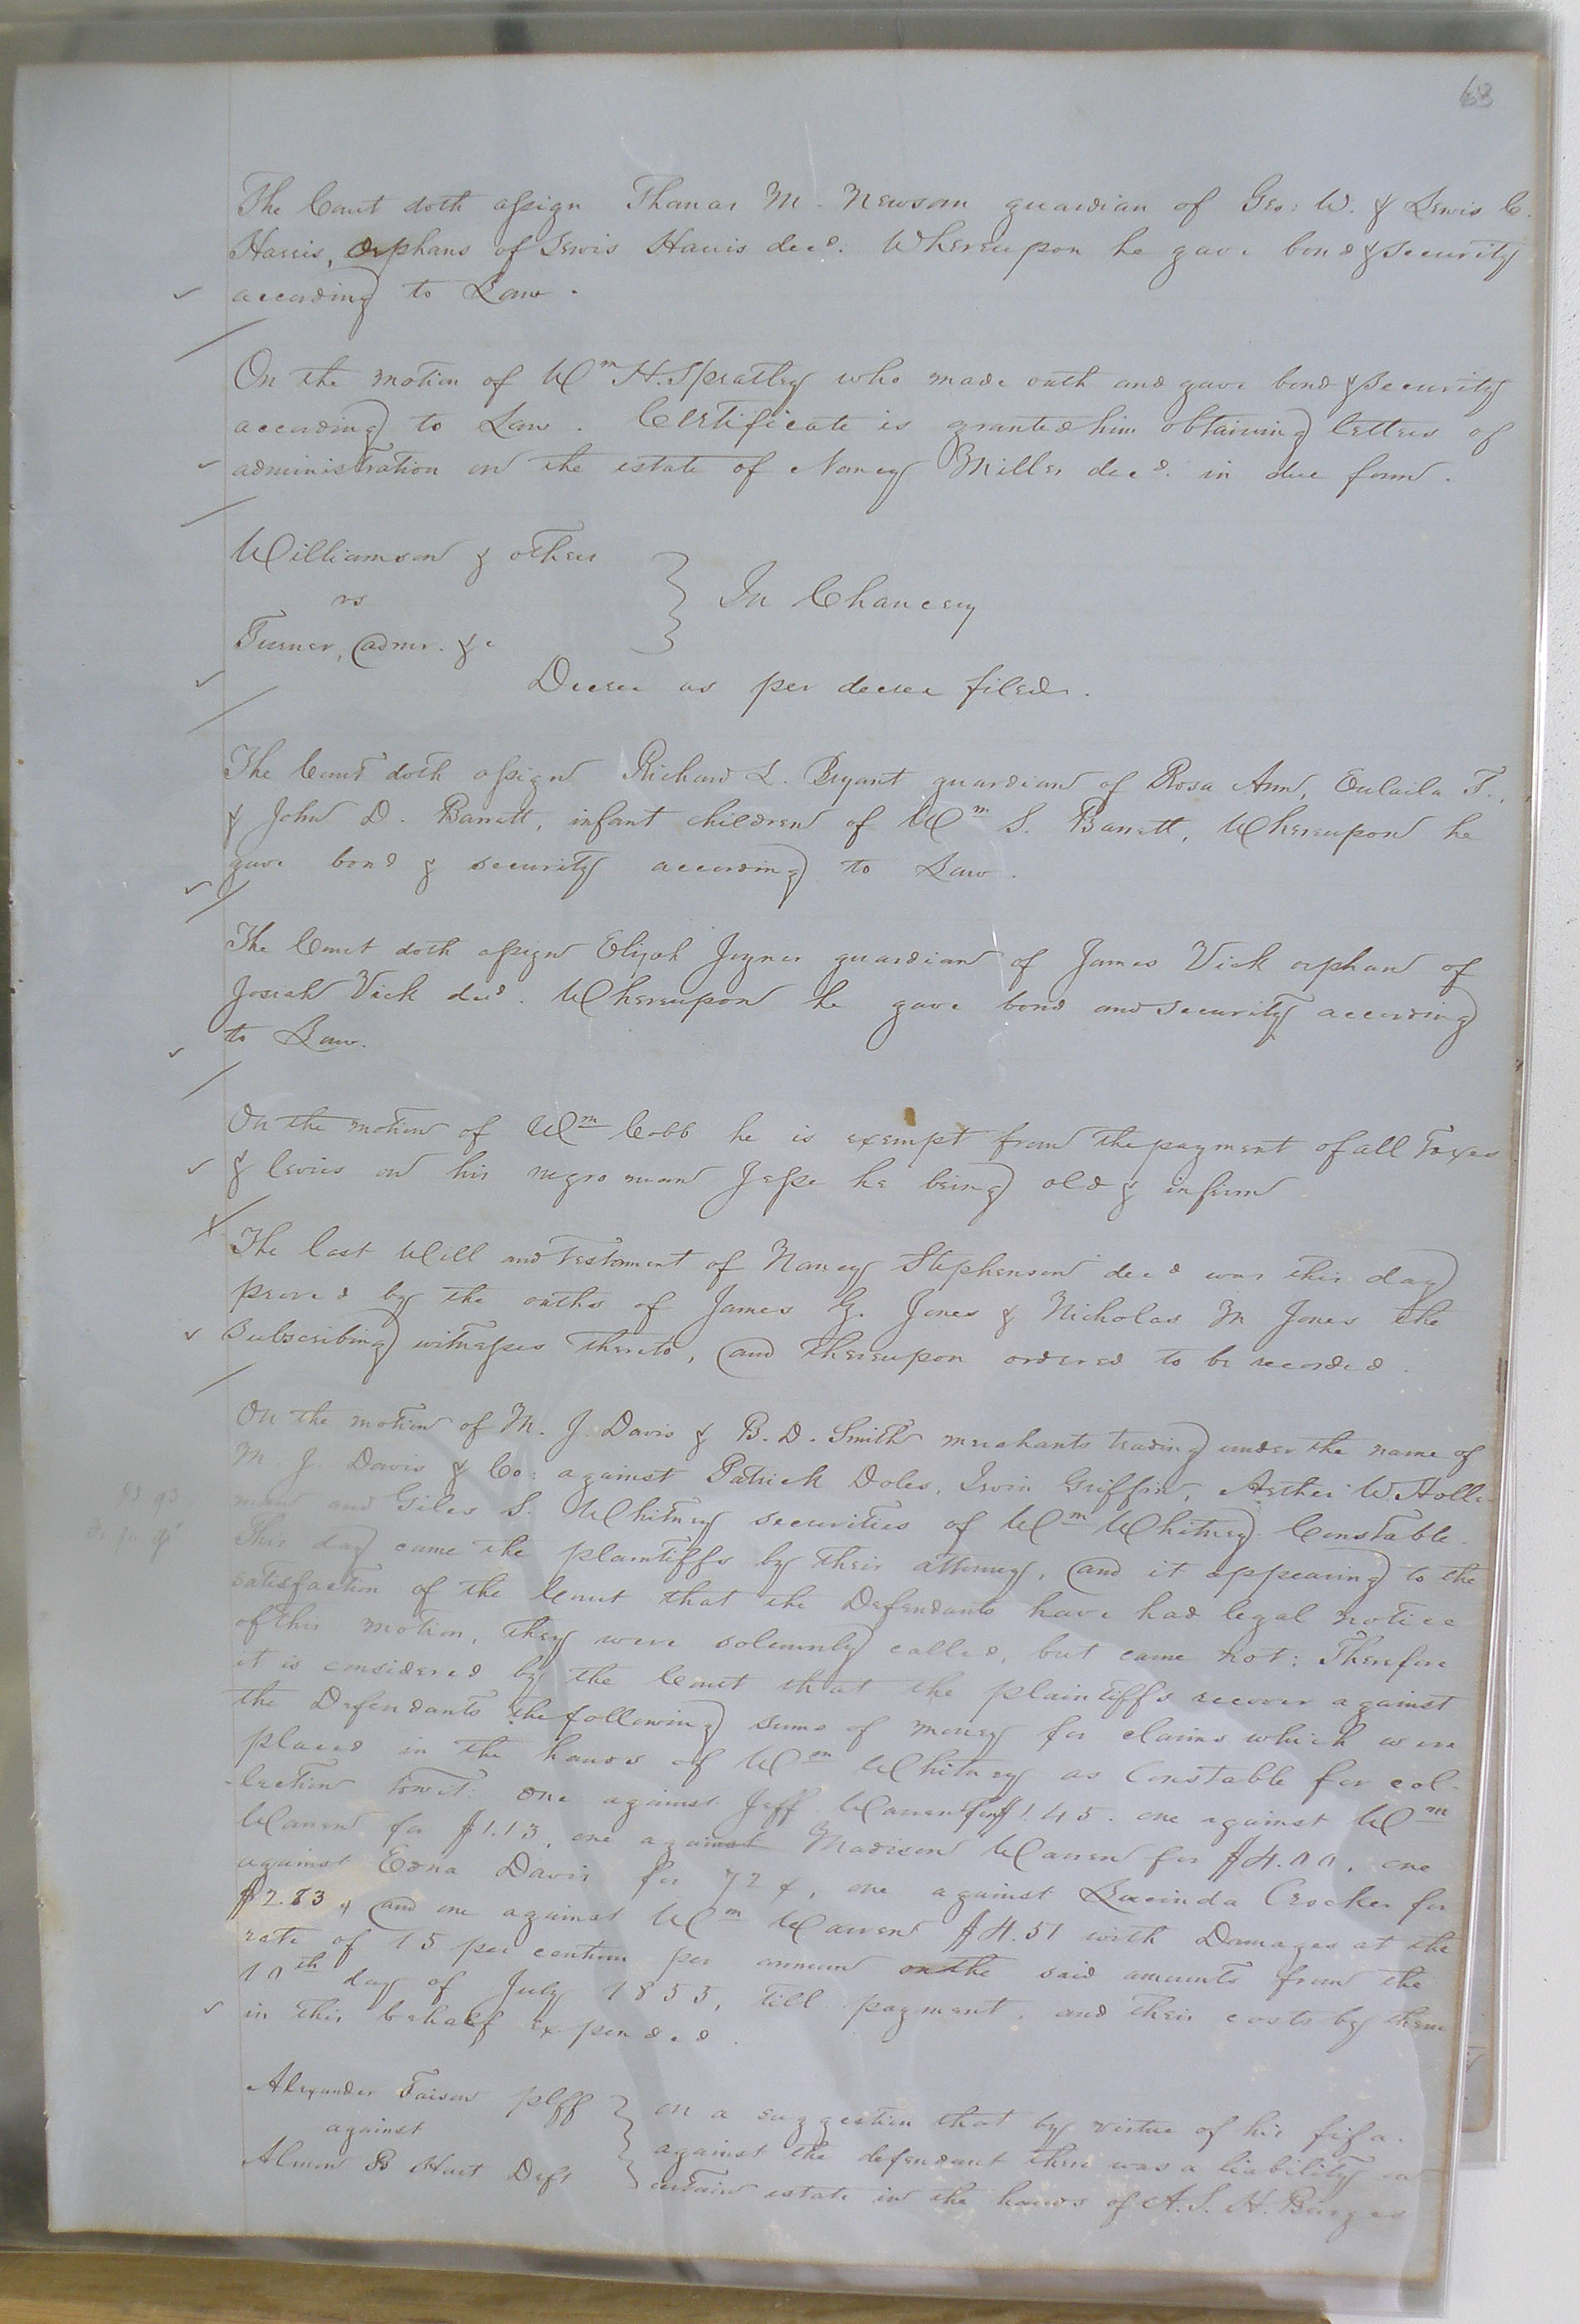 63
The Court doth assign Thomas M. Newsom guardian of Geo: W. & Lewis C.
Harris, Orphans of Lewis Harris decd. Whereupon he gave bond & security
according to Law.
On the motion of Wm H. Spratley who made oath and gave bond & security
according to Law. Certificate is granted him obtaining letters of
administration on the estate of Nancy Miller decd. in due form.
Williamson & others
vs
Turner, admr. &c
In Chancery
Decree as per decree filed.
The Court doth assign Richard L. Bryant guardian of Rosa Ann, Eulaila T.,
& John D. Barrett, infant children of Wm S. Barrett, Whereupon he
gave bond & security according to Law.
The Court doth assign Elijah Joyner guardian of James Vick orphan of
Josiah Vick decd. Whereupon he gave bond and security according
to Law.
On the motion of Wm Cobb he is exempt from the payment of all Taxes
& levies on his negro man Jesse he being old & infirm
The last Will and Testament of Nancy Stephenson decd was this day
proved by the oaths of James G. Jones & Nicholas M Jones the
Subscribing witnesses thereto, and thereupon ordered to be recorded.
On the motion of M. J. Davis & B. D. Smith merchants trading under the name of
M. J. Davis & Co: against Patrick Doles, Irvin Griffin, Arthur W. Holle-
man and Giles S. Whitney securities of Wm Whitney Constable.
This day came the plaintiffs by their attorney, and it appearing to the
satisfaction of the Court that the Defendants have had legal notice
of this motion, they were solemnly called, but came not: Therefore
it is considered by the Court that the plaintiffs recover against
the Defendants the following sums of money for claims which were
placed in the hands of Wm Whitney as Constable for col-
-lection towit: one against Jeff Warren for $1.45. one against Wm
Warren for $1.13, one against Madison Warren for $4.00, one
against Edna Davis for 72 ¢, one against Lucinda Crocker for
$2.83, and one against Wm Warren $4.51 with Damages at the
rate of 15 per centum per annum on the said amounts from the
10th day of July 1853, till payment, and their costs by them
in this behalf expended.
Alexander Faison plff
against
Almon B Hart Deft
on a suggestion that by virtue of his fi fa.
against the defendant there was a liability on
certain estate in the hands of A. S. H. Burges